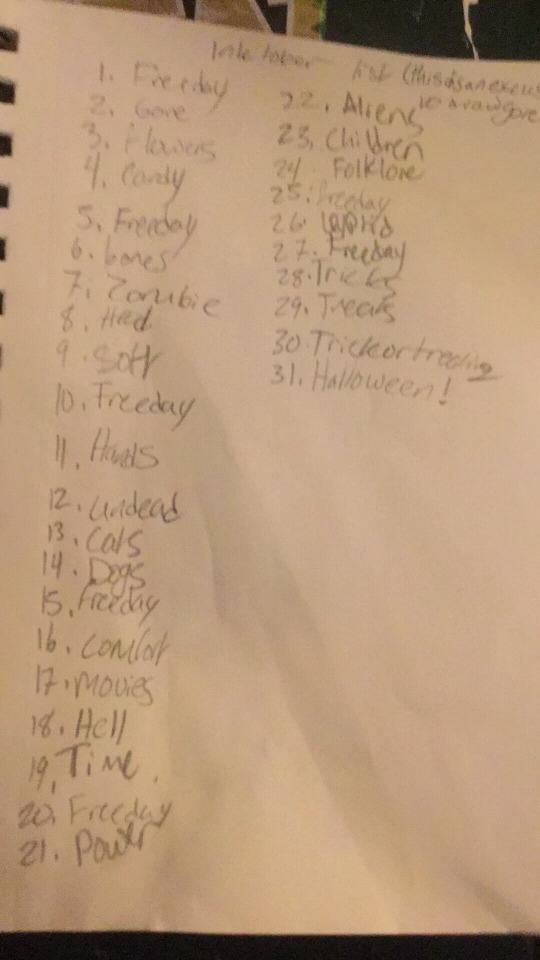 Inktober list (this is an excuse
to draw gore
1. Freeday
2. Gore
3. Flowers
4. Candy
5. Freeday
6. bones
7. Zombie
8. Head
9. Soft
10. Freeday
11. Hands
12. undead
13. Cats
14. Dogs
15. Freeday
16. comfort
17. movies
18. Hell
19. Time
20. Freeday
21. Power
22. Aliens
23. Children
24. Folklore
25. Freeday
26.
27. Freeday
28. Tricks
29. Treats
30. Trick or treating
31. Halloween!